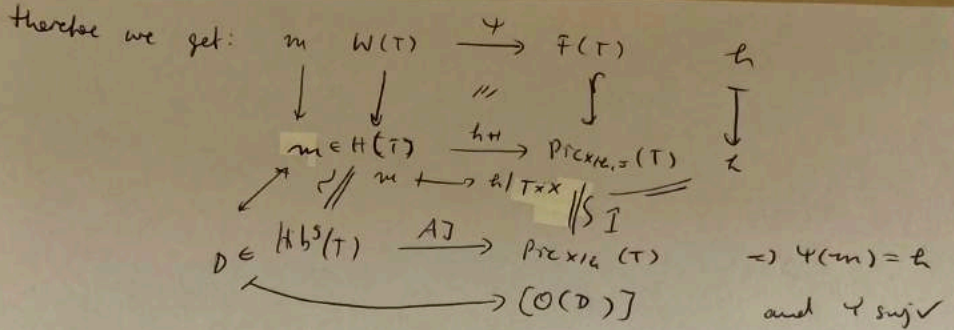 therefore we get: m W(T) Ψ→ F(T) h
m ∈ H(T) → Pic_{X/k,=}(T) h
m ↦ h/T×X
D ∈ Hb^s(T) AJ→ Pic_{X/k}(T) => Ψ(m) = h
[O(D)] and Ψ surj ✓